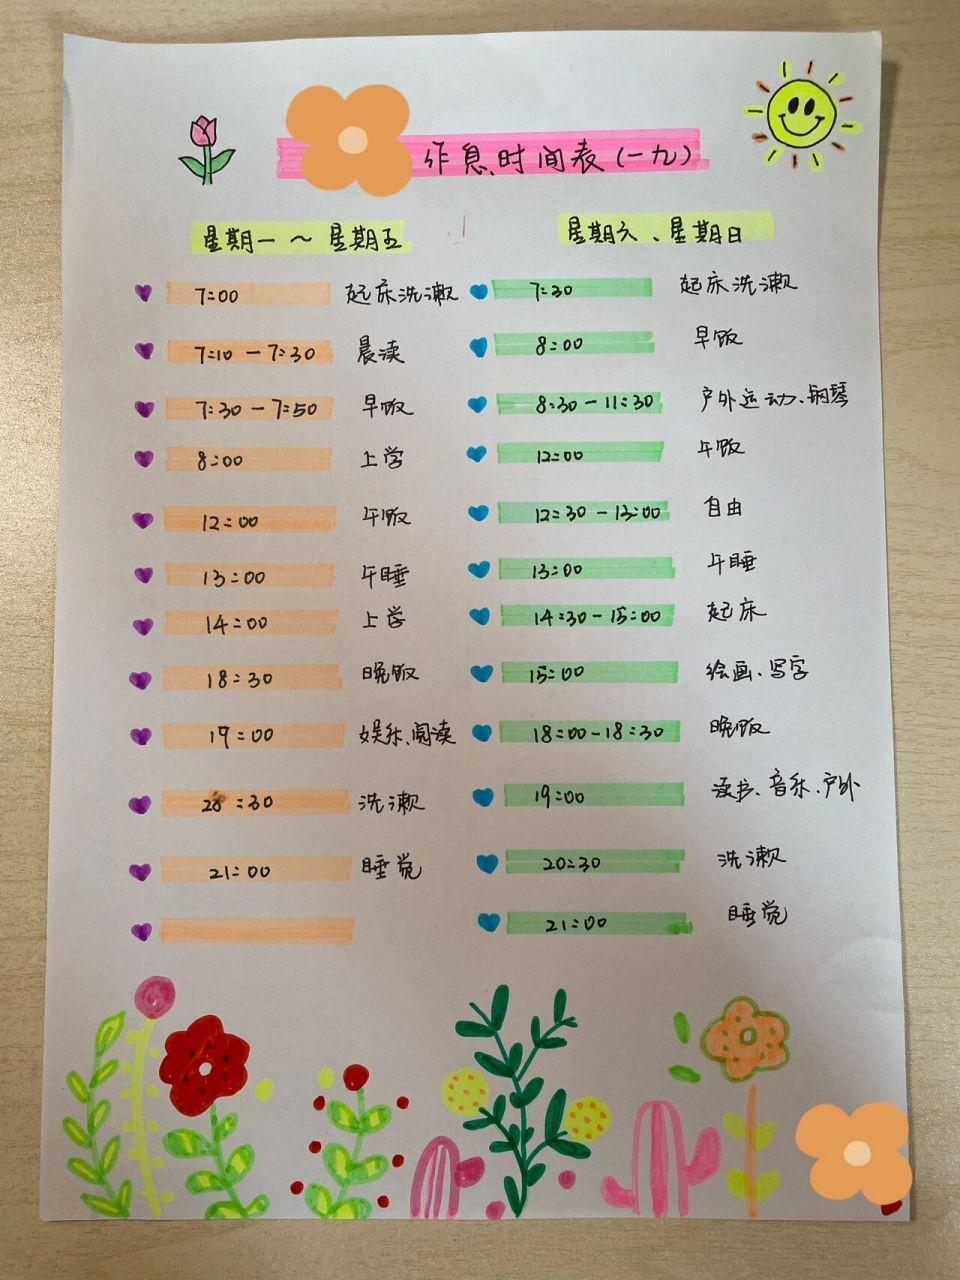 作息时间表(一九)
星期一～星期五
7:00 起床洗漱
7:10－7:30 晨读
7:30－7:50 早饭
8:00 上学
12:00 午饭
13:00 午睡
14:00 上学
18:30 晚饭
19:00 娱乐、阅读
20:30 洗漱
21:00 睡觉
星期六、星期日
7:30 起床洗漱
8:00 早饭
8:30－11:30 户外运动、钢琴
12:00 午饭
12:30－13:00 自由
13:00 午睡
14:30－15:00 起床
15:00 绘画、写字
18:00-18:30 晚饭
19:00 读书、音乐、户外
20:30 洗漱
21:00 睡觉